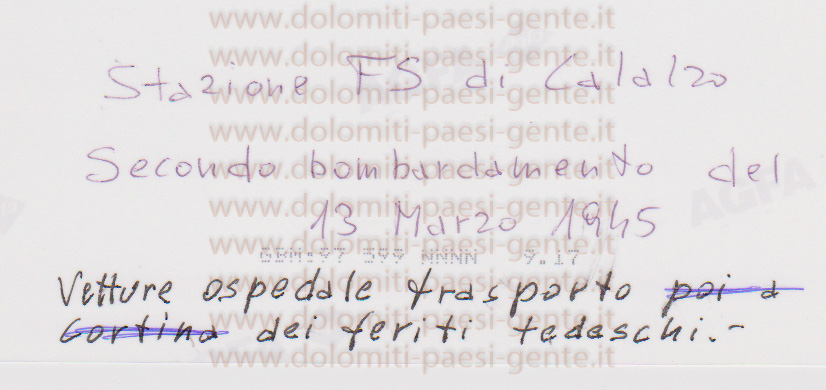 www.dolomiti-paesi-gente.it
Stazione FS di Calalzo
www.dolomiti-paesi-gente.it
www.dolomiti-paesi-gente.it
www.dolomiti-paesi-gente.it
Secondo bombardamento del
www.dolomiti-paesi-gente.it
AGFA
13 Marzo 1945
www.dolomiti-paesi-gente.it
NNNN 9.17
Vetture ospedale trasporto poi a
www.dolomiti-paesi-gente.it
Cortina dei feriti tedeschi.-
www.dolomiti-paesi-gente.it